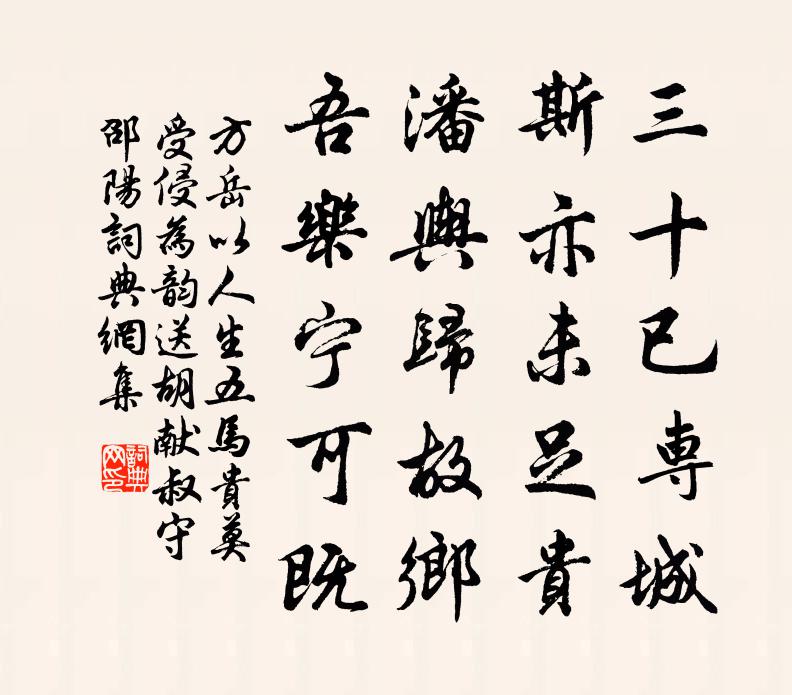 三十已專城
斯亦未足貴
潘輿歸故鄉
吾樂宁可既
方岳以人生五馬貴莫
受侵為韵送胡献叔守
邵陽詞典網集
詞典网印